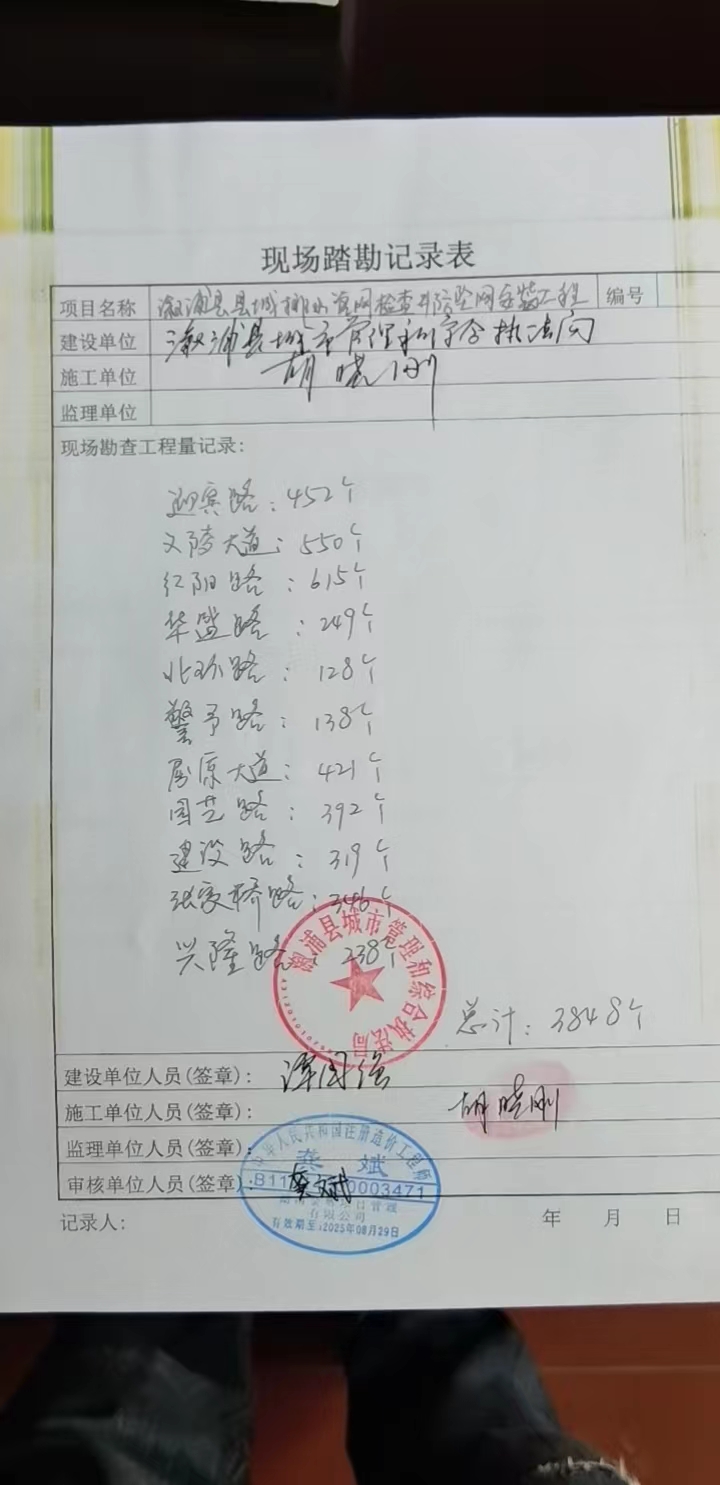 现场踏勘记录表
项目名称 溆浦县县城排水管网检查井防坠网安装工程 编号
建设单位 溆浦县城市管理和综合执法局
施工单位 胡晓刚
监理单位
现场勘查工程量记录：
迎宾路：452个
文陵大道：550个
红阳路：615个
华盛路：249个
北环路：128个
警予路：138个
屈原大道：421个
园艺路：392个
建设路：319个
张家桥路：346个
兴隆路：238个
溆浦县城市管理和综合执法局
总计：3848个
建设单位人员(签章)：谭国强
施工单位人员(签章)：胡晓刚
监理单位人员(签章)：
审核单位人员(签章)：龚斌
中华人民共和国注册造价工程师
龚 斌
B11 0003471
有限公司
有效期至：2025年08月29日
记录人： 年 月 日